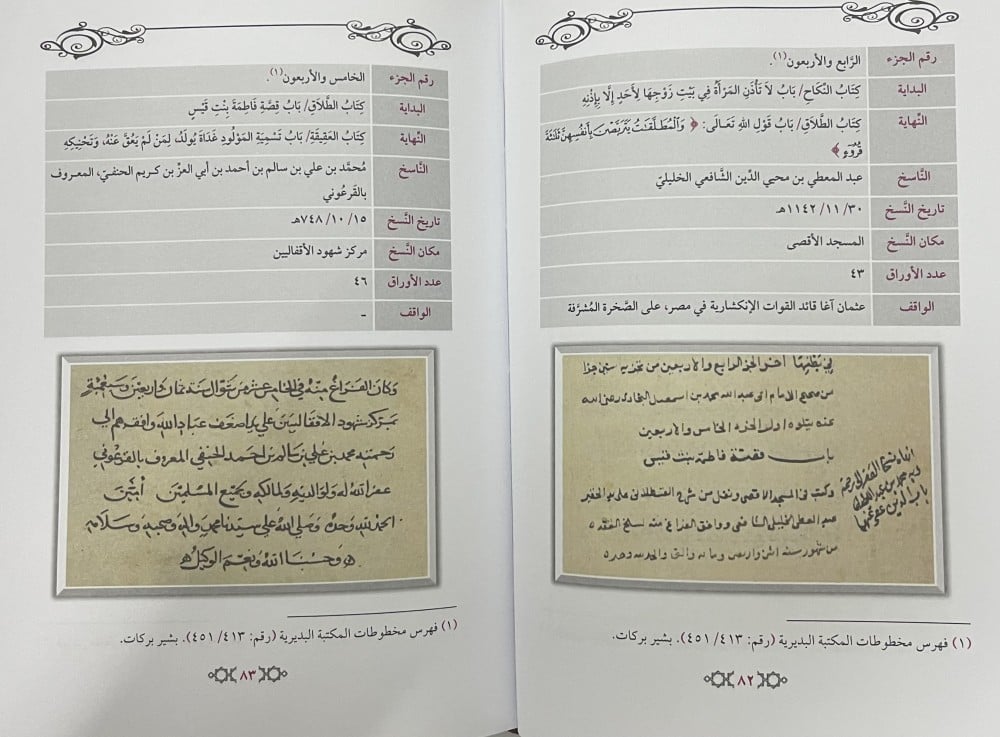 رقم الجزء الرَّابع والأربعون(١).
البداية كِتَابُ النِّكَاحِ/ بَابُ لاَ تَأْذَنِ المَرْأَةُ فِي بَيْتِ زَوْجِهَا لِأَحَدٍ إِلَّا بِإِذْنِهِ
النِّهاية كِتَابُ الطَّلاَقِ/ بَابُ قَوْلِ اللهِ تَعَالَى: ﴿ وَٱلْمُطَلَّقَٰتُ يَتَرَبَّصْنَ بِأَنفُسِهِنَّ ثَلَٰثَةَ
قُرُوٓءٍ ﴾
النَّاسخ عبد المعطي بن محيي الدِّين الشَّافعي الخليليّ
تاريخ النَّسخ ٣٠/ ١١/ ١١٤٢هـ
مكان النَّسخ المسجد الأقصى
عدد الأوراق ٤٣
الواقف عثمان آغا قائد القوات الإنكشارية في مصر، على الصَّخرة المُشرَّفة
آخر الجزء الرابع والاربعين من تجزية ستين جزا
من صحيح الامام ابى عبد الله محمد بن اسمعيل البخارى رضى الله
عنه يتلوه اول الجزء الخامس والاربعين
باب قصة فاطمة بنت قيس
وكتب فى المسجد الاقصى ونقل من شرح القسطلانى على يد الحقير
عبد المعطى الخليلى الشافعى ووافق الفراغ منه سلخ القعدة
من شهور سنة اثنى واربعين وماية والف والحمد لله وحده
(١) فهرس مخطوطات المكتبة البديرية (رقم: ٤١٣/ ٤٥١). بشير بركات.
٨٢
رقم الجزء الخامس والأربعون(١).
البداية كِتَابُ الطَّلاَقِ/ بَابُ قِصَّةِ فَاطِمَةَ بِنْتِ قَيْسٍ
النِّهاية كِتَابُ العَقِيقَةِ/ بَابُ تَسْمِيَةِ المَوْلُودِ غَدَاةَ يُولَدُ، لِمَنْ لَمْ يَعُقَّ عَنْهُ، وَتَحْنِيكِهِ
النَّاسخ مُحمَّد بن علي بن سالم بن أحمد بن أبي العزّ بن كريم الحنفيّ، المعروف
بالقَرعُوني
تاريخ النَّسخ ١٥/ ١٠/ ٧٤٨هـ
مكان النَّسخ مركز شهود الأقفاليين
عدد الأوراق ٤٦
الواقف -
وكان الفراغ منه في الخامس عشر من شوال سنة ثمان واربعين وسبعمية
بمركز شهود الاقفاليين علي يد اضعف عباد الله وافقرهم الي
رحمته محمد بن علي بن سالم بن احمد الحنفي المعروف بالقرعوني
غفر الله له ولوالديه ولمالكه ولجميع المسلمين امين
الحمد لله وحده وصلي الله علي سيدنا محمد واله وصحبه وسلامه
وحسبنا الله ونعم الوكيل
(١) فهرس مخطوطات المكتبة البديرية (رقم: ٤١٣/ ٤٥١). بشير بركات.
٨٣